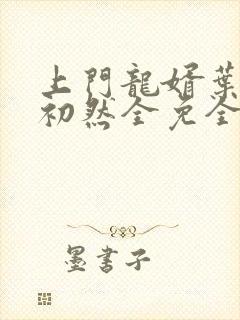 上門龍婿葉
初然全免全
墨書子